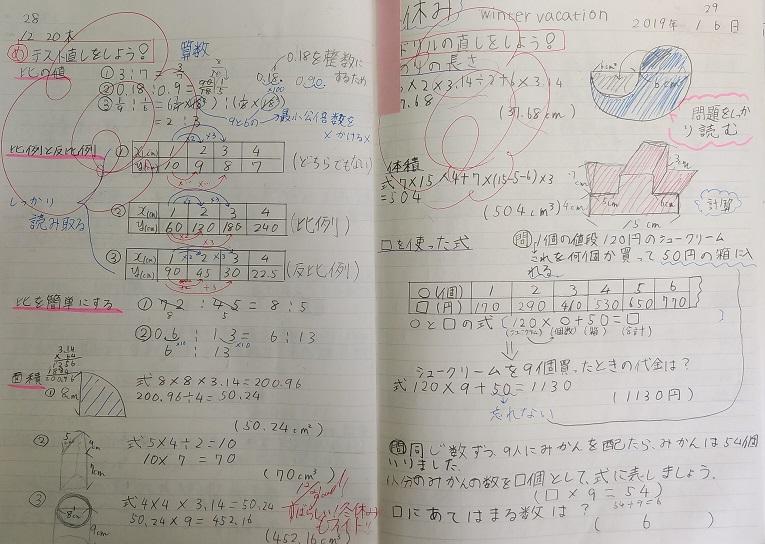 28
12 20 木
め テスト直しをしよう?
算数
比の値
① 3:7 = 3/7
② 0.18:0.9 =
0.18を整数に
するため
0.18
×100
0.90
= 2:3
9と6の最小公倍数を
×かける×
比例と反比例
① x(cm) 1 2 3 4
y(cm) 10 9 8 7
(どちらでもない)
しっかり
読み取る
② x(cm) 1 2 3 4
y(cm) 60 120 180 240
(比例)
③ x(cm) 1 2 3 4
y(cm) 90 45 30 22.5
(反比例)
比を簡単にする
① 72:45 = 8:5
8 5
② 0.6:1.3 = 6:13
×10 ×10
6:13
面積
① 8cm
式 8×8×3.14=200.96
200.96÷4=50.24
(50.24cm²)
②
式 5×4÷2=10
10×7=70
(70cm³)
③ 8cm
9cm
式 4×4×3.14=50.24
50.24×9=452.16
(452.16cm³)
すばらしい!冬休み
もファイト!!
29
休み winter vacation
2019年 1 6日
ドリルの直しをしよう?
の長さ
×2×3.14÷2+6×3.14
7.68
(37.68cm)
6cm
6cm
問題をしっか
り読む
体積
式 7×15×4+7×(15-5-6)×3
=504
(504cm³)
3cm
4cm
5cm
6cm
15cm
計算
□を使った式
問 1個の値段120円のシュークリーム
これを何個か買って50円の箱に入
れる
○(個) 1 2 3 4 5 6
□(円) 170 290 410 530 650 770
○と□の式 (120×○+50=□)
(シュークリーム) (個数) (箱) (合計)
シュークリームを9個買ったときの代金は?
式 120×9+50=1130
(1130円)
忘れない
問 同じ数ずつ9人にみかんを配たら、みかんは54個
いりました。
1人分のみかんの数を□個として、式に表しましょう。
(□×9=54)
54÷9=6
□にあてはまる数は?
(6)